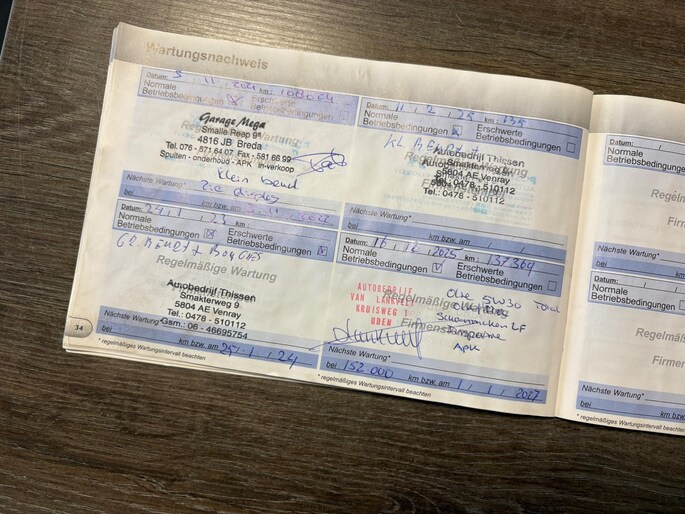 Wartungsnachweis
Datum: 5 . 11 . 2021 km:
Normale Betriebsbedingungen
Erschwerte Betriebsbedingungen
Garage Mega
Smalle Reep 9ª
4816 JB Breda
Tel. 076 - 571 64 07 Fax - 581 66 99
Spuiten - onderhoud - APK in-verkoop
Regelmäßige Wartung
Klein beurt
Nächste Wartung*
Zie display
Datum: 11 . 2 . 25 km: 135
Normale Betriebsbedingungen
Erschwerte Betriebsbedingungen
KL BEURT
Autobedrijf Thissen
Smakterweg 9
5804 AE Venray
Tel.: 0478 - 510112
Nächste Wartung*
bei km bzw. am
Datum: 24 . 1 . 23 km:
Normale Betriebsbedingungen
Erschwerte Betriebsbedingungen
GR BEURT + BOUGIES
Regelmäßige Wartung
Autobedrijf Thissen
Smakterweg 9
5804 AE Venray
Tel.: 0478 - 510112
Gsm.: 06 - 46695754
Nächste Wartung*
bei km bzw. am 24 . 1 . 24
* regelmäßiges Wartungsintervall beachten
34
Datum: 16 . 12 . 2025 km: 137369
Normale Betriebsbedingungen
Erschwerte Betriebsbedingungen
AUTOBEDRIJF
VAN LANKVELT
KRUISWEG 1
UDEN
Regelmäßige Wartung
Firmenstempel
Olie 5W30 Total
APK
Nächste Wartung*
bei 152.000 km bzw. am 1 . 1 . 2027
* regelmäßiges Wartungsintervall beachten
Datum:
Normale
Betriebsbedingungen
Regelmä
Firmen
Nächste Wartung*
bei
Datum:
Normale
Betriebsbedingungen
Regelmä
Firmer
Nächste Wartung*
bei
* regelmäßiges Wartungsintervall beachten